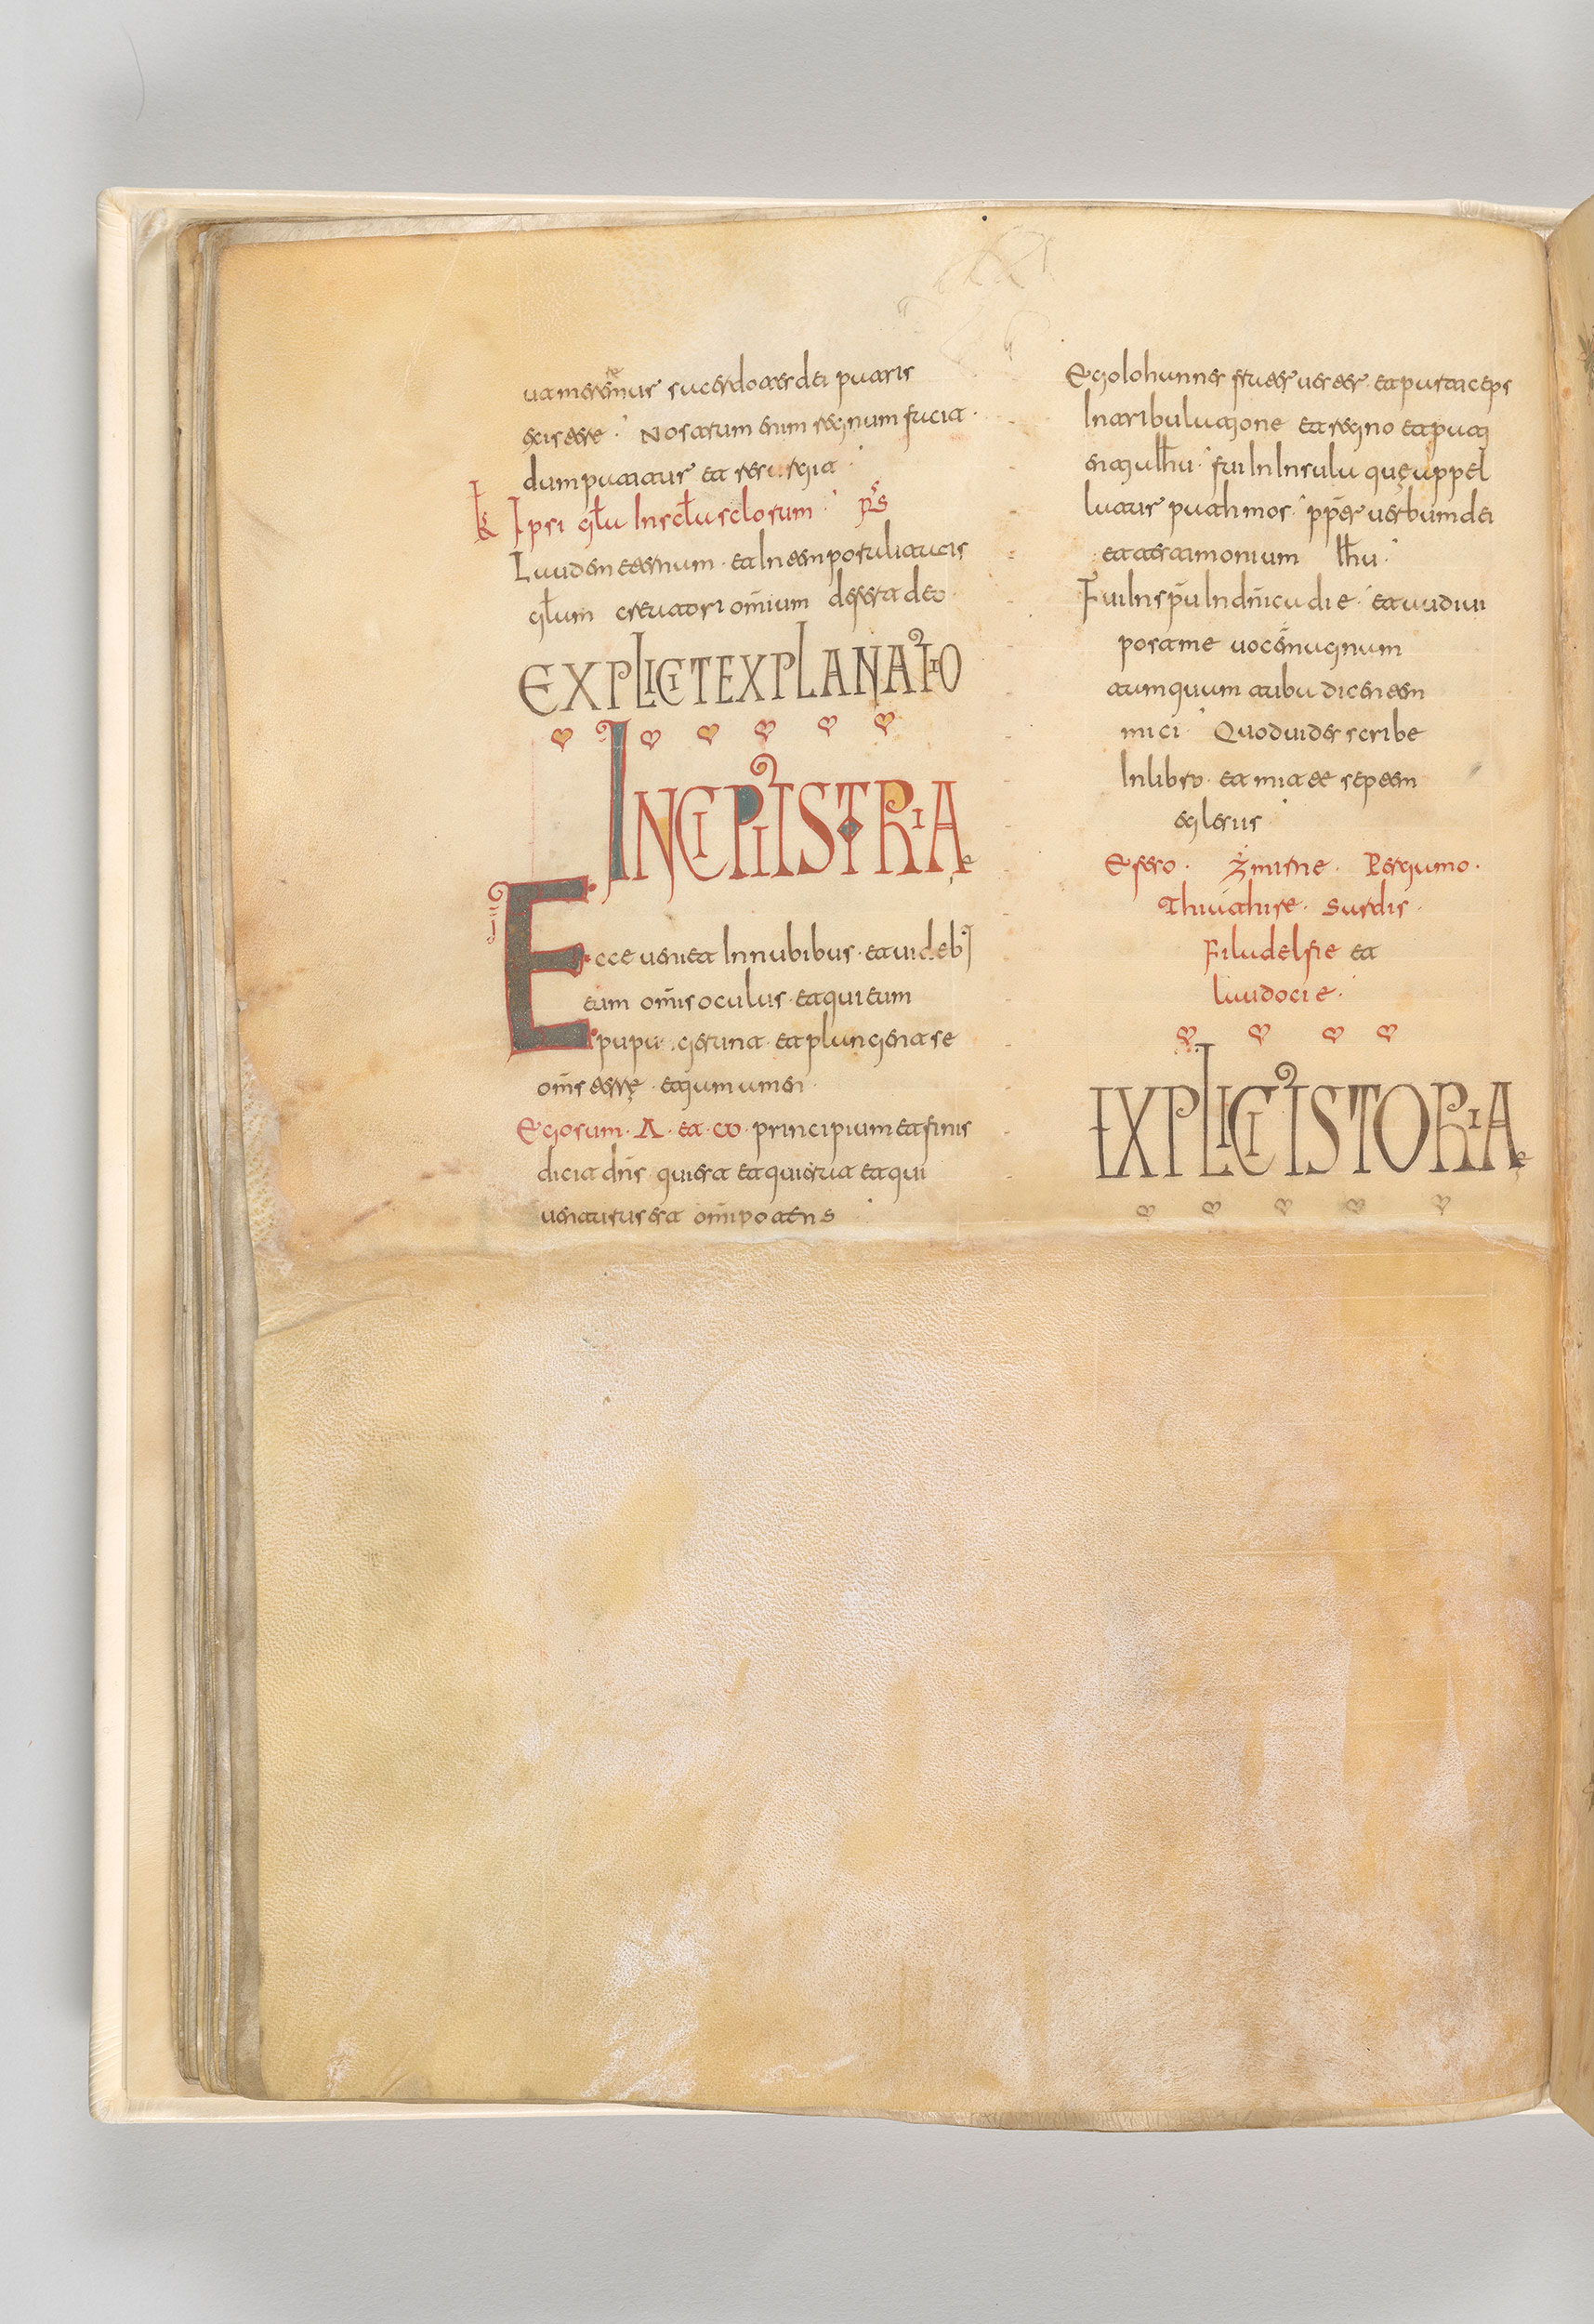 meremur sacerdotes dei patris
esse · Nostrum enim regnum facit ·
dum patitur et resurgit ·
Ipsi gła In scła sclorum · PS
Laudem eternum · et In
głam creatori om̄ium deferat deo ·
EXPLICIT EXPLANATIO
INCIPIT ISTRIA ę
Ecce uenit In nubibus · et uideb̄
eum om̄is oculus · et qui eum
pupugerunt · et plangent se
om̄s terrę · etiam amen ·
Ego sum · A · et · ω · principium et finis
dicit dn̄s qui est et qui erat et qui
uenturus est om̄ipotens ·
Ego Iohannes frater uester · et particeps
In tribulatione et regno et pati
entia Ih̄u · fui In Insula quę appel
latur pathmos · pp̄ter uerbum dei
et testimonium Ih̄u ·
Fui In sp̄u In dn̄ica die · et audiui
post me uocem magnam
tamquam tuba dicentem
mici · Quod uides scribe
In libro · et mitte septem
eglesiis
Efeso · Zmirne · Pergamo ·
Thiatire · Sardis ·
Filadelfie et
laudocie ·
EXPLICIT ISTORIA ę